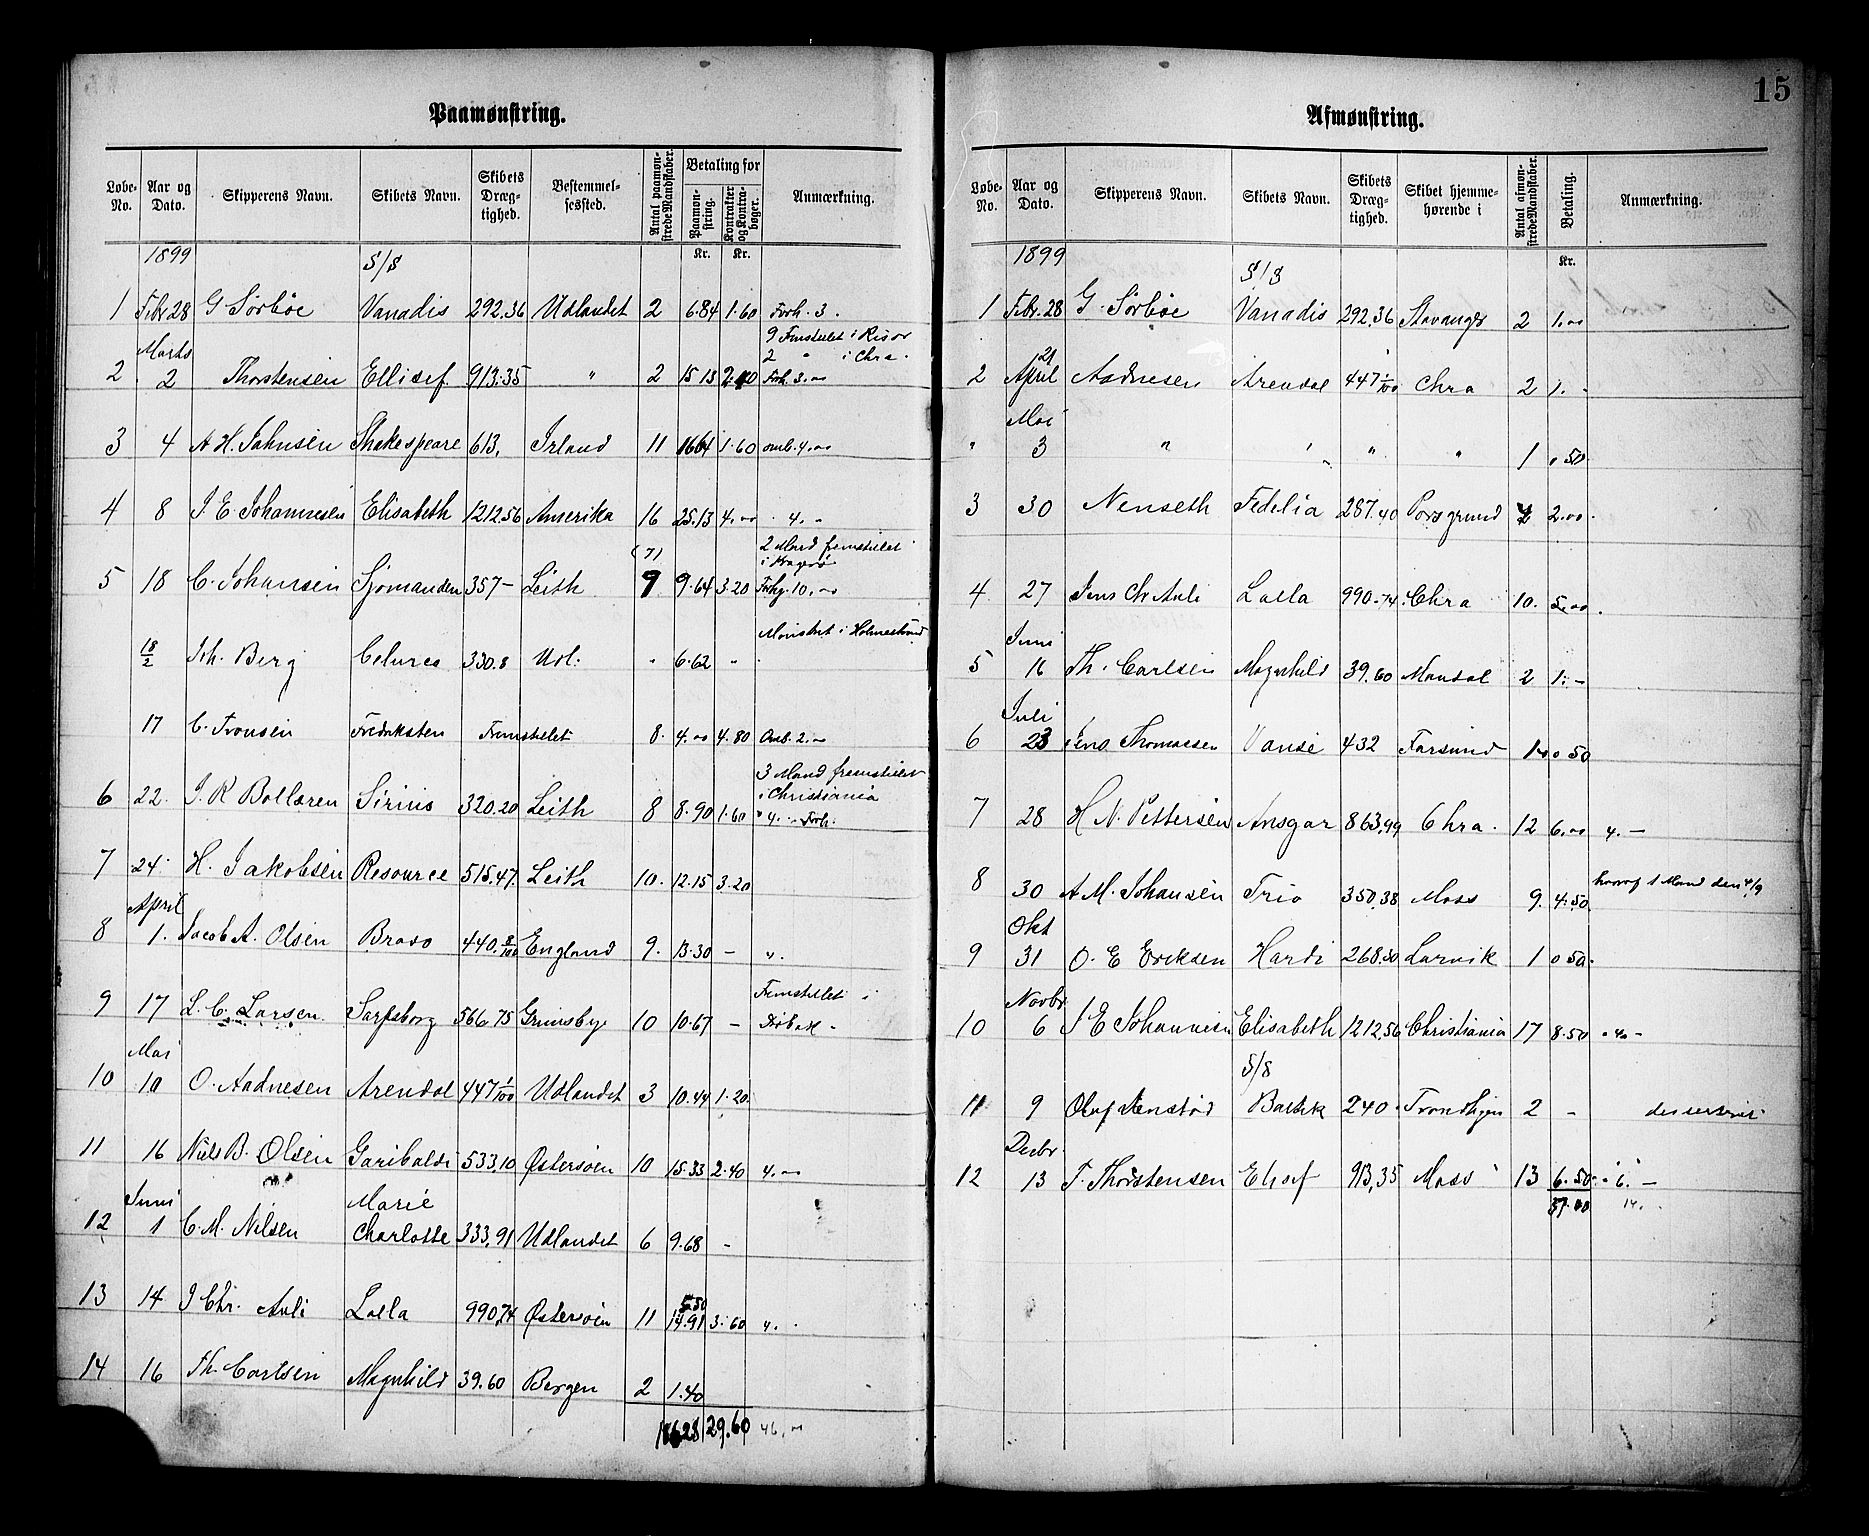 15
Paamønstring.
Løbe-No. Aar og Dato. Skipperens Navn. Skibets Navn. Skibets Dræg-tighed. Bestemmel-sessted. Antal paamøn-strede Mandskaber. Betaling for Paamøn-string. Kontrakter og Kontra-bøger. Anmærkning.
Kr. Kr.
1899 S/S
1 Febr. 28 G Sørbøe Vanadis 292.36 Udlandet 2 6.84 1.60 Forh. 3.
9 Fremstillet i Risør
Marts 2 " i Chra.
2 2 Thorstensen Ellisef 913.35 " 2 15 13 2.40 Forh. 3.00
3 4 A H. Johnsen Shakespeare 613. Irland 11 1664 1.60 omb. 4.00
4 8 J E Johannesen Elisabeth 1212.56 Amerika 16 25.13 4.00 " 4. "
(7) 2 Mand fremstillet
i Kragerø
5 18 C. Johansen Sjømanden 357 – Leith 9 9.64 3.20 Forhg. 10.00
Mønstret i Holmestrand
18/2 Joh. Berg 330.8 Udl. " 6.62 "
17 C. Tronsen Fredriksten Fremstillet 8. 4.00 4.80 Omb. 2.00
3 Mand fremstillet
i Christiania
6 22. J. R Bollæren Sirius 320.20 Leith 8 8.90 1.60 " 4. – Forh.
7 24. H. Jakobsen Resource 515.47 Leith 10. 12.15 3.20
April
8 1. Jacob A. Olsen Bravo 440.8/100 England 9. 13.30 – "
Fremstillet i
9 17 L. C. Larsen Sarpsborg 566 75 Grimsby 10 10.67 – Drøbak –
Mai
10 10 O. Aadnesen Arendal 447 1/100 Udlandet 3 10.44 1.20.
11 16 Niels B. Olsen Garibaldi 533,10 Østersøen 10 15.33 2.40 4. –
Juni Marie
12 1 C. M. Nilsen Charlotte 333,91 Udlandet 6 9.68 –
5.50
13 14 J Chr. Auli Lalla 990,74 Østersøen 11 14.91 3.60 4. .
14 16 Th. Carlsen Magnhild 39.60 Bergen 2 1.40
29.60 46,00
Afmønstring.
Løbe-No. Aar og Dato. Skipperens Navn. Skibets Navn. Skibets Dræg-tighed. Skibet hjemme-hørende i Antal afmøn-strede Mandskaber. Betaling. Anmærkning.
Kr.
1899 S/S
1 Febr. 28 G. Sørbøe Vanadis 292,36 Stavanger 2 1.00
21
2 April Aadnesen Arendal 447 1/100 Chra 2 1. –
Mai
" 3 " " " " 1 0 50.
3 30 Nenseth Fedelia 287.40 Porsgrund 4 2.00.
4 27 Jens Chr Auli Lalla 990.74 Chra 10. 5.00.
Juni
5 16 Th. Carlsen Magnhild 39.60 Mandal 2 1. –
Juli
6 23 Jens Thomassen Vanse 432 Farsund 1 0 50
7 28 H N. Pettersen Ansgar 863,99 Chra. 12 6.00 4. –
8 30 A M. Johansen Trio 350,38 Moss 9. 4.50. hvoraf 1 Mand den 4/9
Okt
9 31 O. E Eriksen Hardi 268.30 Larvik 1 0 50.
Novbr.
10 6 J E Johannesen Elisabeth 1212,56 Christiania 17 8.50 " 4. –
S/S
11 9 Olaf Baltik 240. Trondhjem 2 –
Decbr.
12 13 T. Thorstensen Elisef 913,35 Moss 13 6.50 " 6. –
37.00 14. .